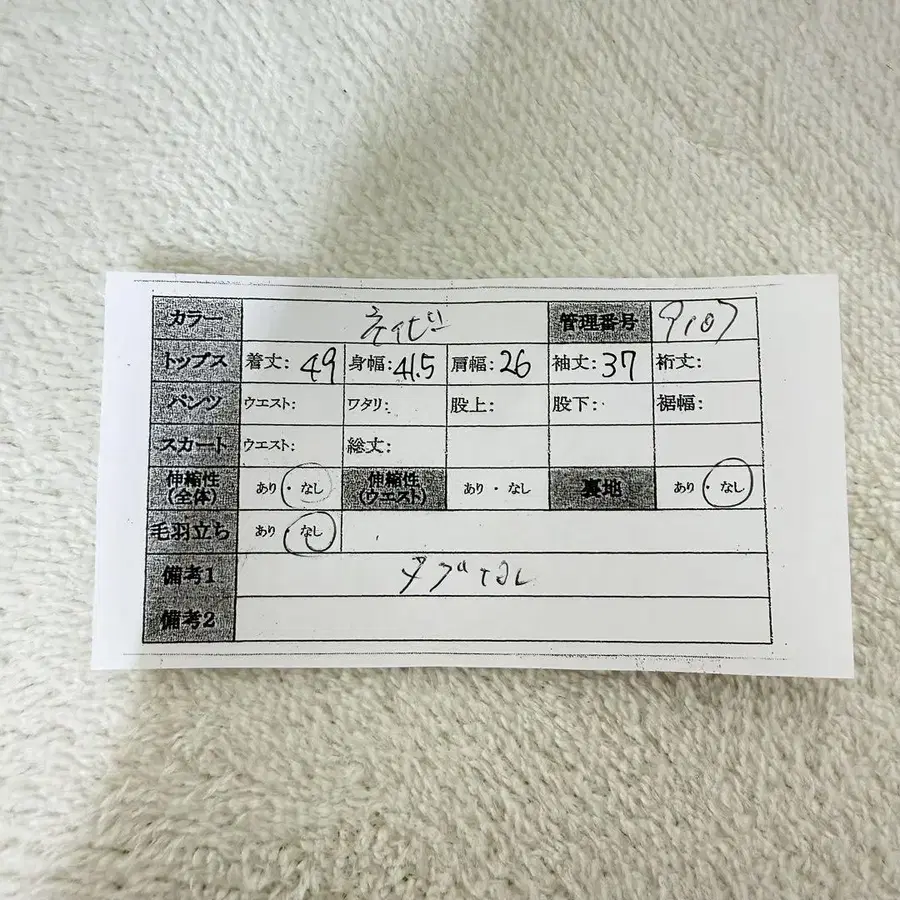 カラー ネイビー 管理番号 9107
トップス 着丈: 49 身幅: 41.5 肩幅: 26 袖丈: 37 裄丈:
パンツ ウエスト: ワタリ: 股上: 股下: 裾幅:
スカート ウエスト: 総丈:
伸縮性(全体) あり・なし 伸縮性(ウエスト) あり・なし 裏地 あり・なし
毛羽立ち あり・なし
備考1 タグなし
備考2